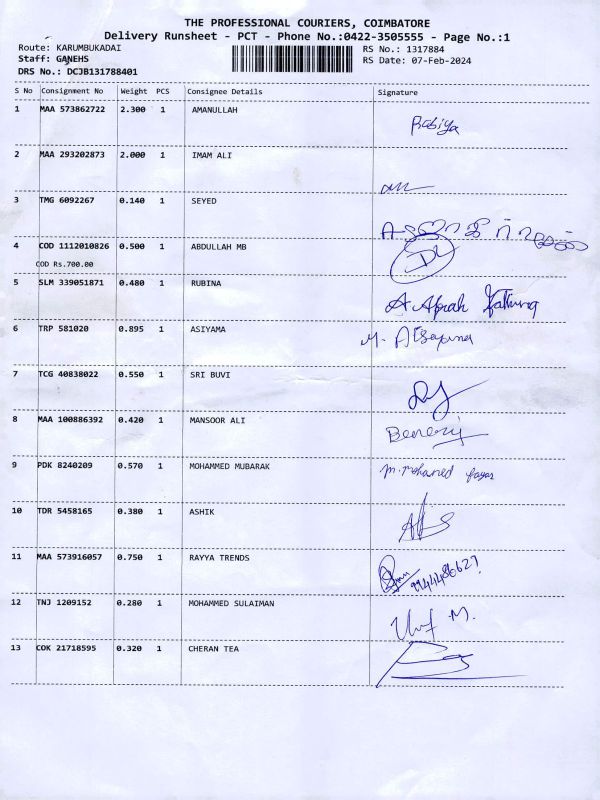 THE PROFESSIONAL COURIERS, COIMBATORE
Delivery Runsheet - PCT - Phone No.:0422-3505555 - Page No.:1
Route: KARUMBUKADAI RS No.: 1317884
Staff: GANEHS RS Date: 07-Feb-2024
DRS No.: DCJB131788401
S No Consignment No Weight PCS Consignee Details Signature
1 MAA 573862722 2.300 1 AMANULLAH Rabiya
2 MAA 293202873 2.000 1 IMAM ALI
3 TMG 6092267 0.140 1 SEYED
4 COD 1112010826 0.500 1 ABDULLAH MB
COD Rs.700.00
5 SLM 339051871 0.480 1 RUBINA A. Afrah Fathima
6 TRP 581020 0.895 1 ASIYAMA M.
7 TCG 40838022 0.550 1 SRI BUVI
8 MAA 100886392 0.420 1 MANSOOR ALI
9 PDK 8240209 0.570 1 MOHAMMED MUBARAK m.mohamed fayas
10 TDR 5458165 0.380 1 ASHIK
11 MAA 573916057 0.750 1 RAYYA TRENDS
12 TNJ 1209152 0.280 1 MOHAMMED SULAIMAN
13 COK 21718595 0.320 1 CHERAN TEA